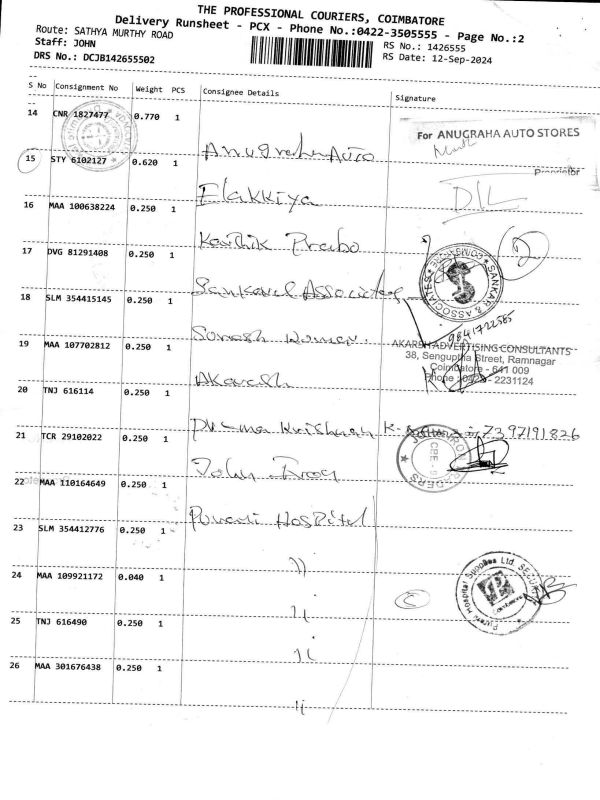 THE PROFESSIONAL COURIERS, COIMBATORE
Delivery Runsheet - PCX - Phone No.:0422-3505555 - Page No.:2
Route: SATHYA MURTHY ROAD
Staff: JOHN
DRS No.: DCJB142655502
RS No.: 1426555
RS Date: 12-Sep-2024
S No Consignment No Weight PCS Consignee Details Signature
14 CNR 1827477 0.770 1
Anugraha Auto
For ANUGRAHA AUTO STORES
Proprietor
15 STY 6102127 0.620 1
Elakkiya
16 MAA 100638224 0.250 1
Karthik Prabo
17 DVG 81291408 0.250 1
SANKAR & ASSOCIATES
18 SLM 354415145 0.250 1
9841722585
19 MAA 107702812 0.250 1
Akarsh
AKARSH ADVERTISING CONSULTANTS
38, Senguptha Street, Ramnagar
Coimbatore - 641 009
Phone : 0422 - 2231124
20 TNJ 616114 0.250 1
7397191826
21 TCR 29102022 0.250 1
22 MAA 110164649 0.250 1
Purani Hospital
23 SLM 354412776 0.250 1
24 MAA 109921172 0.040 1
Hospital Supplies Ltd.
25 TNJ 616490 0.250 1
26 MAA 301676438 0.250 1